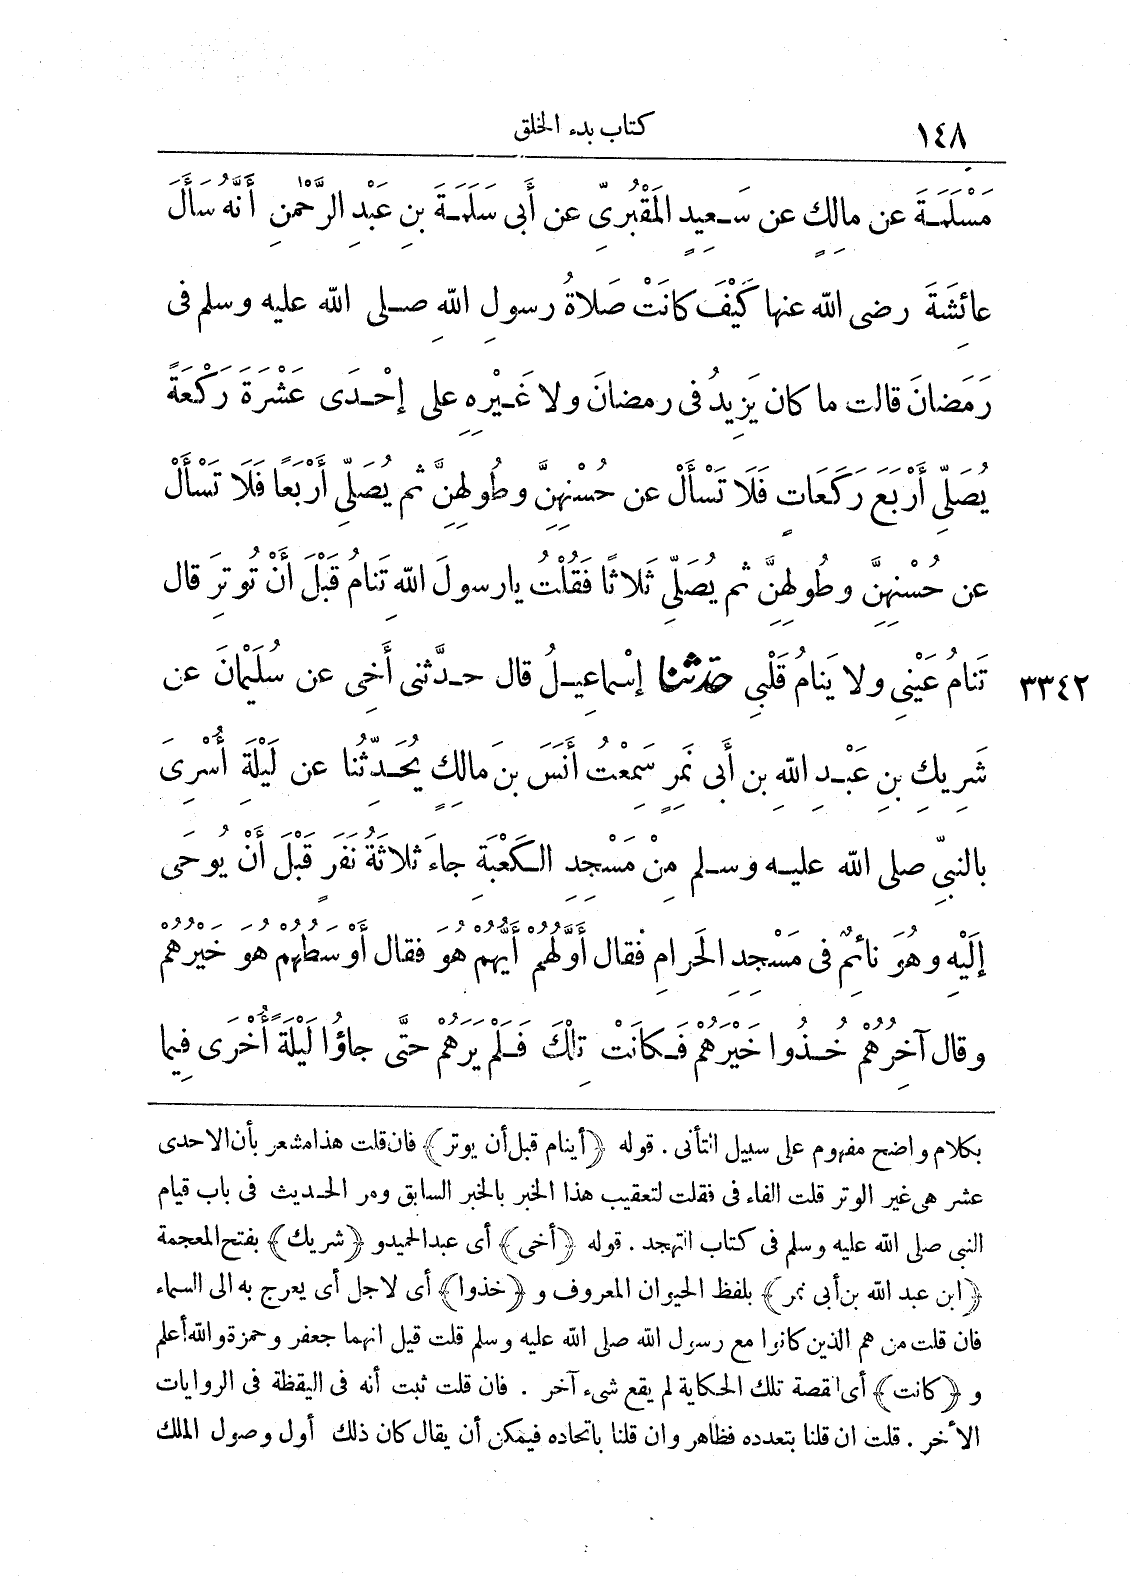 ١٤٨ كتاب بدء الخلق
مَسْلَمَةَ عن مالِكٍ عن سَعِيدٍ المَقْبُرِيِّ عن أَبى سَلَمَةَ بنِ عَبْدِ الرَّحْمٰنِ أَنَّهُ سَأَلَ
عائِشَةَ رضى الله عنها كَيْفَ كانَتْ صَلاةُ رسولِ اللهِ صلى الله عليه وسلم فى
رَمَضانَ قالت ما كان يَزِيدُ فى رمضانَ ولا غَيْرِهِ على إحْدَى عَشْرَةَ رَكْعَةً
يُصَلِّى أَرْبَعَ رَكَعَاتٍ فَلَا تَسْأَلْ عن حُسْنِهِنَّ وطُولِهِنَّ ثم يُصَلِّى أَرْبَعًا فَلَا تَسْأَلْ
عن حُسْنِهِنَّ وطُولِهِنَّ ثم يُصَلِّى ثَلاثًا فَقُلْتُ يارسولَ اللهِ تَنامُ قَبْلَ أَنْ تُوتِرَ قال
تَنامُ عَيْنِى ولا يَنامُ قَلْبِى حدثنا إسْماعِيلُ قال حدَّثنى أَخِى عن سُلَيْمانَ عن ٣٣٤٢
شَرِيكِ بنِ عَبْدِ اللهِ بنِ أَبى نَمِرٍ سَمِعْتُ أَنَسَ بنَ مالِكٍ يُحَدِّثُنا عن لَيْلَةَ أُسْرِىَ
بالنبىِّ صلى الله عليه وسلم مِنْ مَسْجِدِ الكَعْبَةِ جاءَ ثلاثَةُ نَفَرٍ قَبْلَ أَنْ يُوحَى
إلَيْهِ وهُوَ نائِمٌ فى مَسْجِدِ الحَرامِ فقال أَوَّلُهُمْ أَيُّهُمْ هُوَ فقال أَوْسَطُهُمْ هُوَ خَيْرُهُمْ
وقال آخِرُهُمْ خُذُوا خَيْرَهُمْ فَكانَتْ تِلْكَ فَلَمْ يَرَهُمْ حتَّى جاؤُا لَيْلَةً أُخْرَى فِيما
بكلام واضح مفهوم على سبيل التأنى . قوله ﴿أينام قبل أن يوتر﴾ فان قلت هذا مشعر بأن الاحدى
عشر هى غير الوتر قلت الفاء فى فقلت لتعقيب هذا الخبر بالخبر السابق ومر الحديث فى باب قيام
النبى صلى الله عليه وسلم فى كتاب التهجد . قوله ﴿أخى﴾ أى عبد الحميد و﴿شريك﴾ بفتح المعجمة
﴿ابن عبد الله بن أبى نمر﴾ بلفظ الحيوان المعروف و﴿خذوا﴾ أى لاجل أى يعرج به الى السماء
فان قلت من هم الذين كانوا مع رسول الله صلى الله عليه وسلم قلت قيل انهما جعفر وحمزة والله أعلم
و﴿كانت﴾ أى القصة تلك الحكاية لم يقع شىء آخر . فان قلت ثبت أنه فى اليقظة فى الروايات
الأخر . قلت ان قلنا بتعدده فظاهر وان قلنا باتحاده فيمكن أن يقال كان ذلك أول وصول الملك